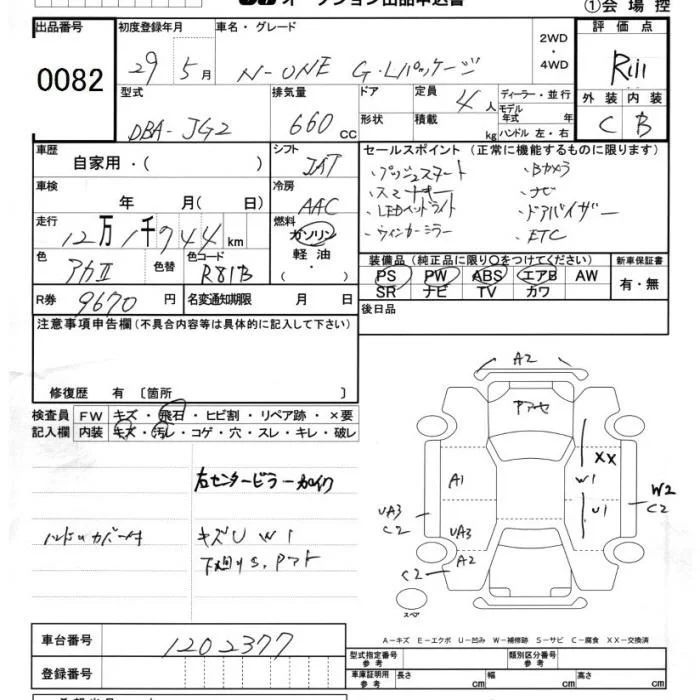 ①会場控
出品番号 初度登録年月 車名・グレード 評価点
0082 29年5月 N-ONE G・Lパッケージ 2WD・4WD R
型式 排気量 ドア 定員 ディーラー・並行 外装 内装
DBA-JG2 660cc 形状 積載 4人 kg モデル年式 年 ハンドル 左・右 C B
車歴 シフト セールスポイント (正常に機能するものに限ります)
自家用・( ) ・プッシュスタート ・Bカメラ
車検 冷房 ・ナビ
年 月(日) AAC ・LEDヘッドライト ・ドアバイザー
走行 燃料 ・ウィンカーミラー ・ETC
12万1千744km ガソリン 軽油・
色 色替 色コード 装備品 (純正品に限り○をつけてください) 新車保証書
アカⅡ R81B PS PW ABS エアB AW 有・無
R券 9670円 名変通知期限 月 日 SR ナビ TV カワ
後日品
注意事項申告欄(不具合内容等は具体的に記入して下さい)
修復歴 有 〔箇所 〕
検査員 FW キズ・飛石・ヒビ割・リペア跡・×要
記入欄 内装 キズ・汚レ・コゲ・穴・スレ・キレ・破レ
右センターピラー
キズU W1
下廻りS,
A2
XX
A1 W1 W2
U1 C2
UA3
C2 UA3
A2
C2
スペア
A-キズ E-エクボ U-凹み W-補修跡 S-サビ C-腐食 XX-交換済
車台番号 1202377 型式指定番号 参考 類別区分番号 参考
登録番号 車庫証明用 参考 長さ cm 幅 cm 高さ cm